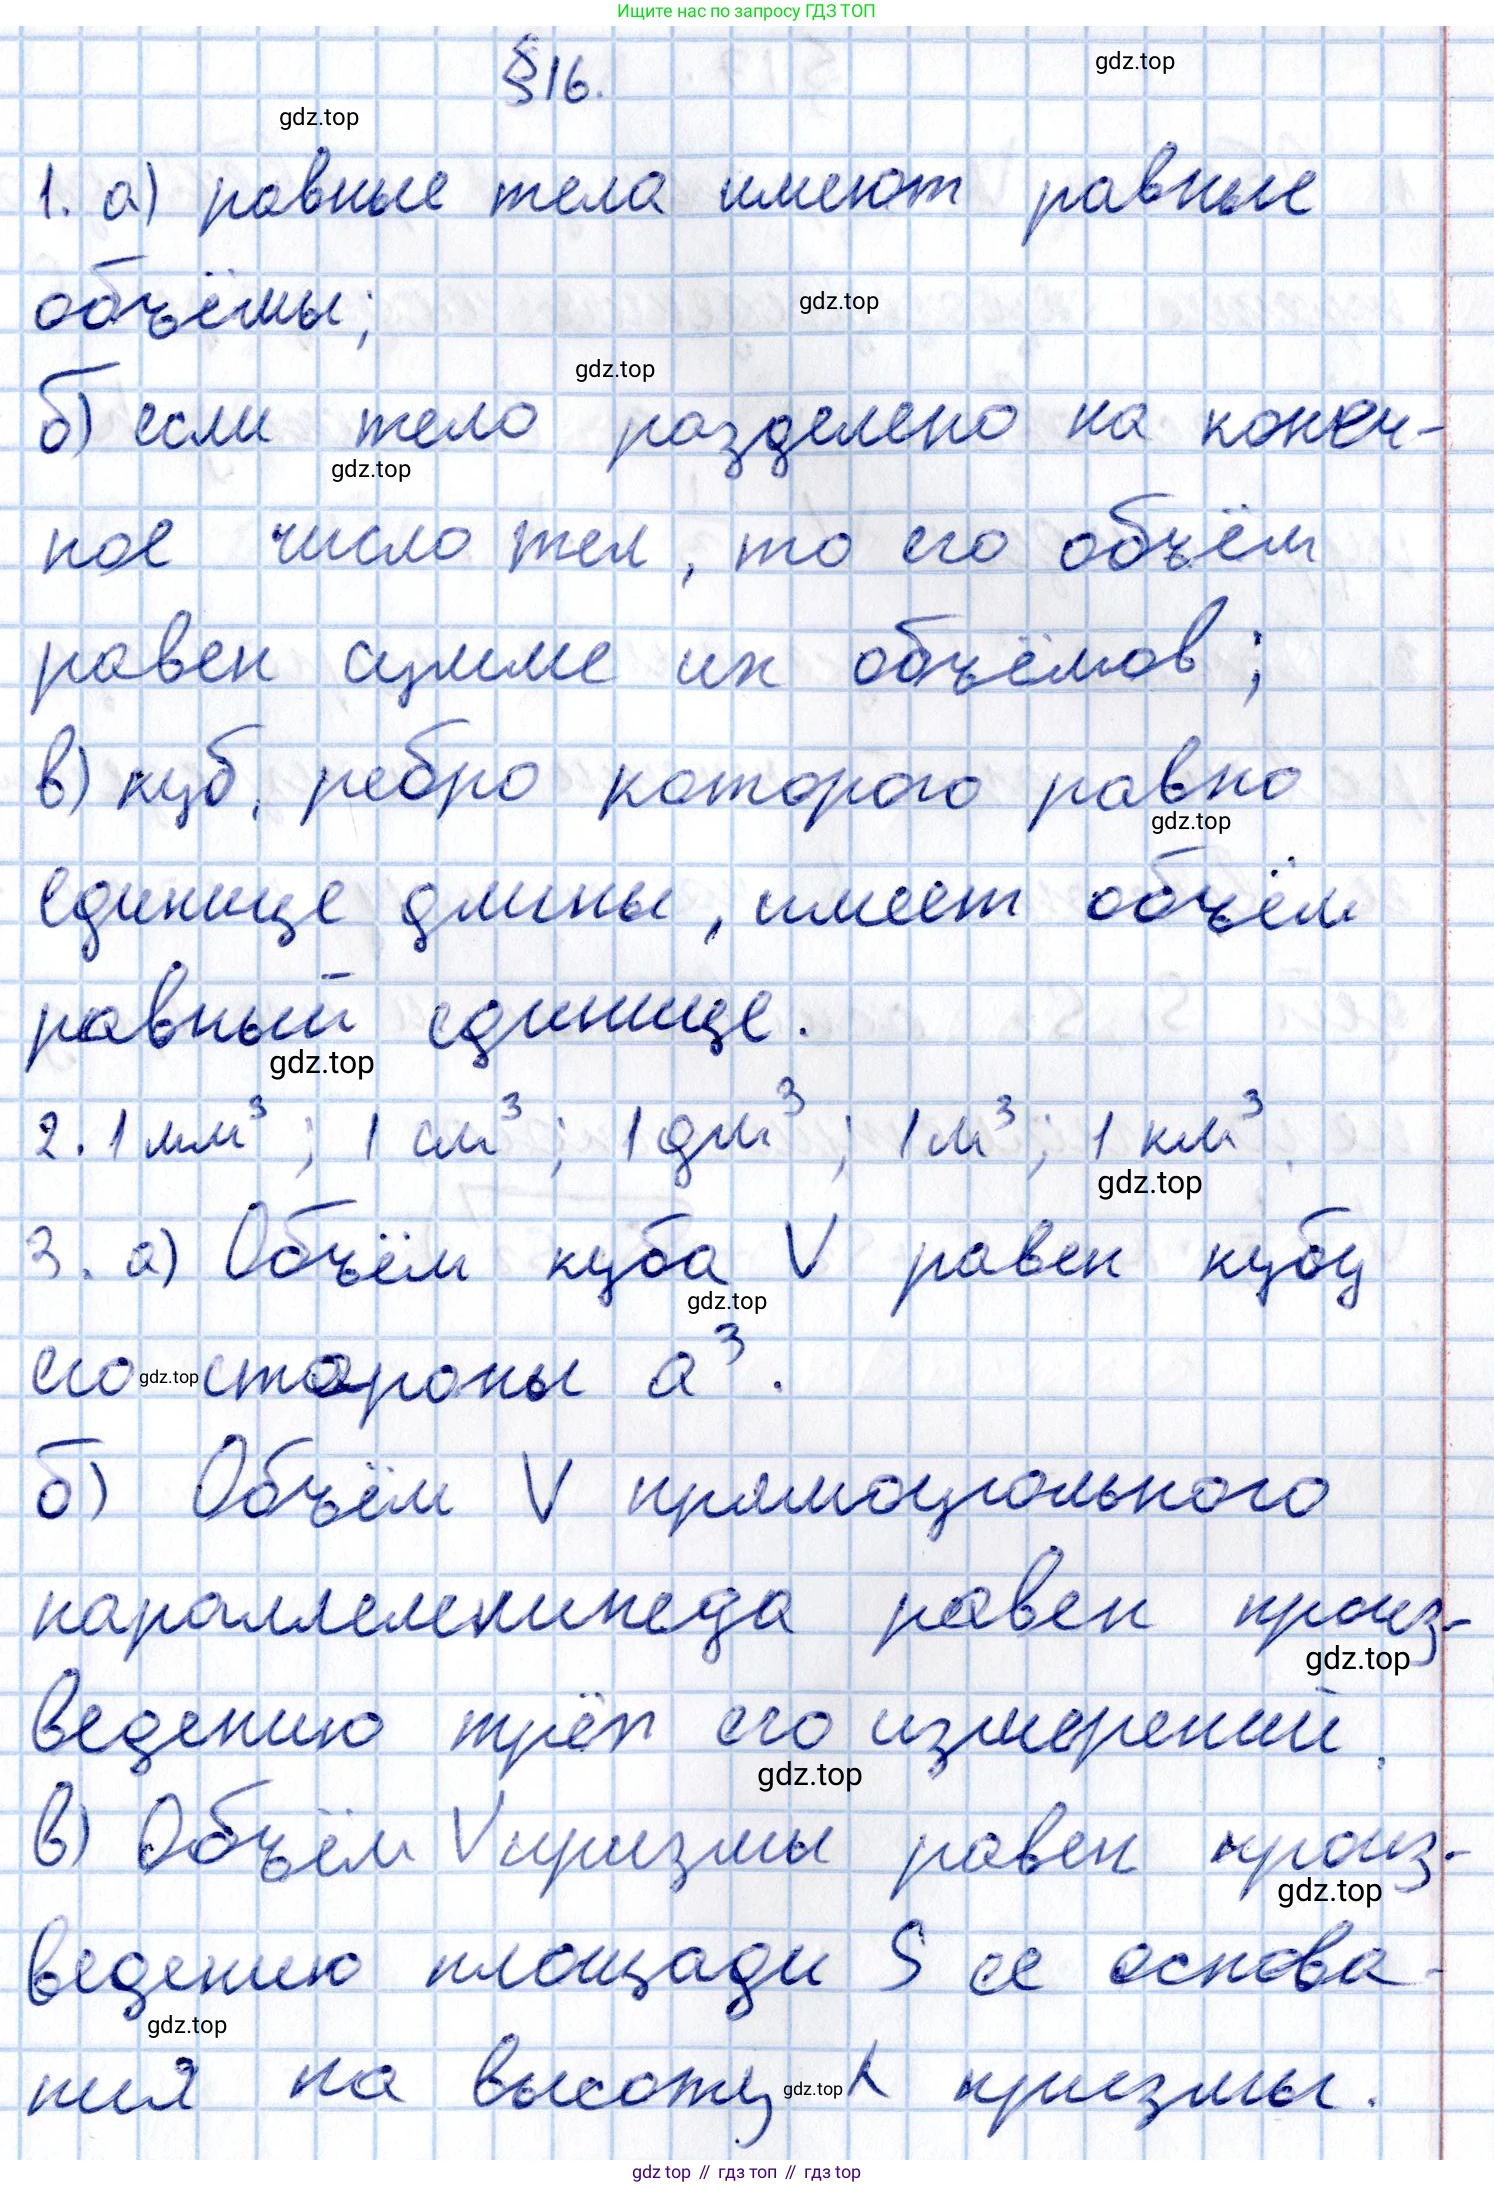 Ищите нас по запросу ГДЗ ТОП
§16.
gdz.top
gdz.top
1. а) равные тела имеют равные
объёмы;
gdz.top
gdz.top
б) если тело разделено на конеч-
gdz.top
ное число тел, то его объём
равен сумме их объёмов;
в) куб, ребро которого равно
gdz.top
единице длины, имеет объём
равный единице.
gdz.top
2. 1 мм³; 1 см³; 1 дм³; 1 м³; 1 км³.
gdz.top
3. а) Объём куба V равен кубу
gdz.top
его gdz.top стороны a³.
б) Объём V прямоугольного
параллелепипеда равен произ-
gdz.top
ведению трёх его измерений.
gdz.top
в) Объём V призмы равен произ-
gdz.top
ведению площади S ее основа-
gdz.top
ния на высоту gdz.top h призмы.
gdz top // гдз топ // gdz top